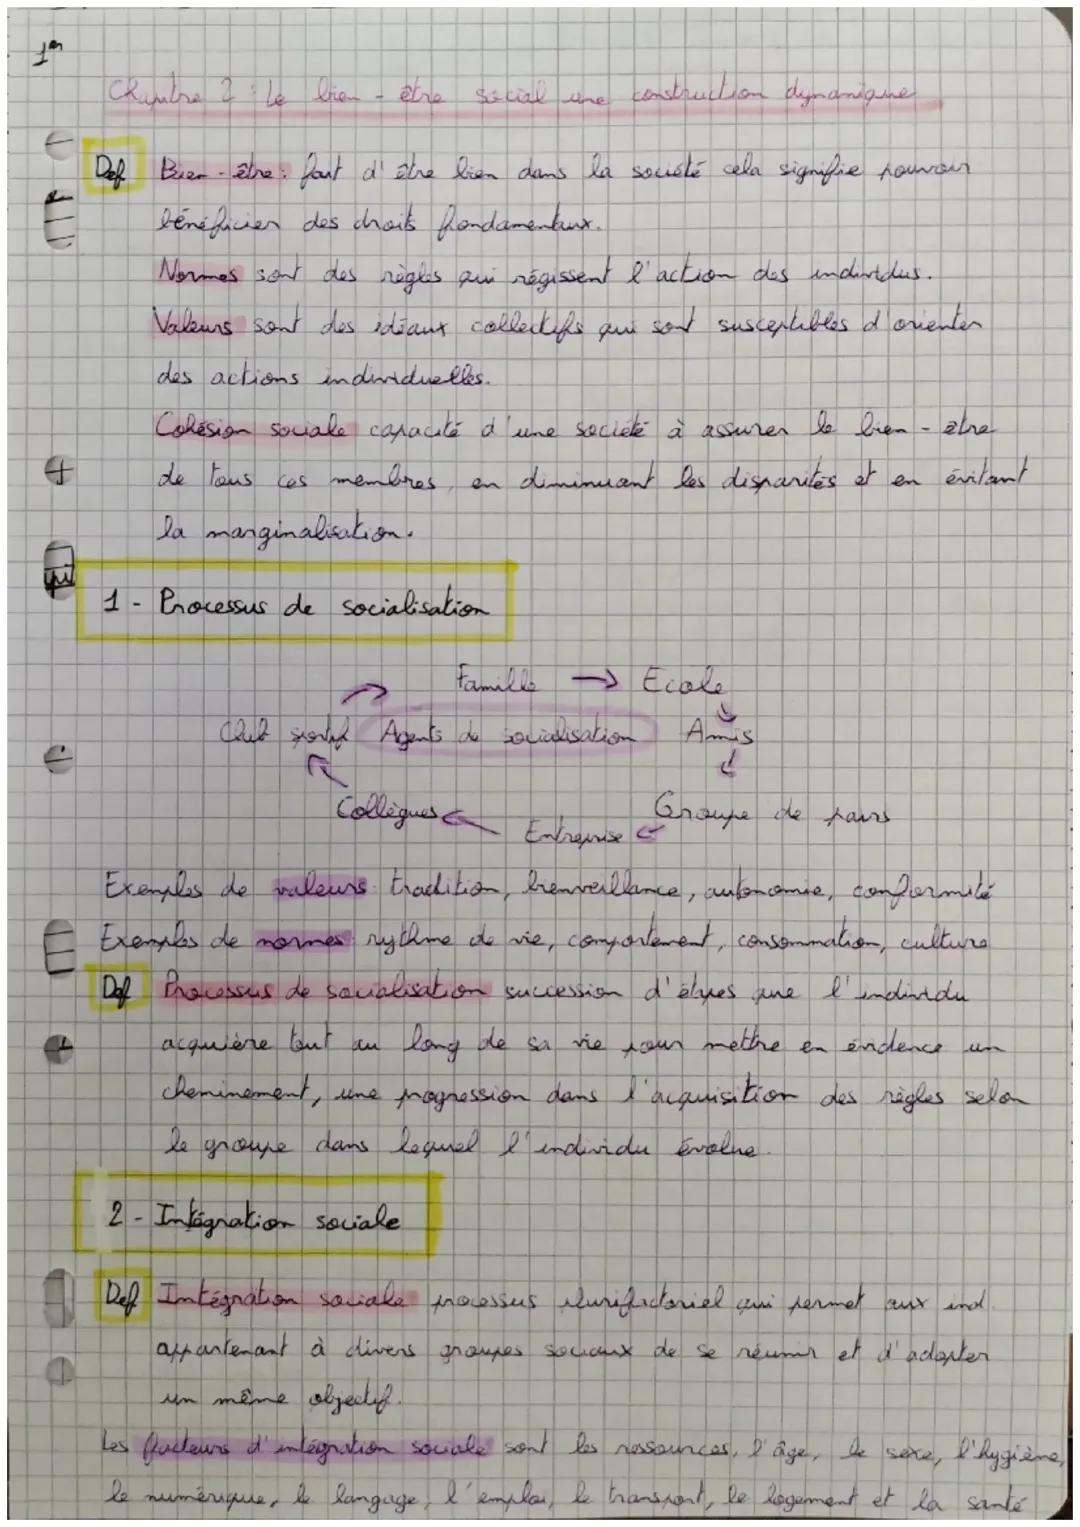 1er
Chapitre 2 : Le bien-être social une construction dynamique
Def Bien-être : fait d'être bien dans la société cela signifie pouvoir
bénéficier des droits fondamentaux.
Normes sont des règles qui régissent l'action des individus.
Valeurs sont des idéaux collectifs qui sont susceptibles d'orienter
des actions individuelles.
Cohésion sociale capacité d'une société à assurer le bien-être
de tous ces membres, en diminuant les disparités et en évitant
la marginalisation.
1 - Processus de socialisation
Famille → Ecole
Club sportif Agents de socialisation Amis
Collègues Groupe de pairs
Entreprise
Exemples de valeurs : tradition, bienveillance, autonomie, conformité
Exemples de normes rythme de vie, comportement, consommation, culture
Def Processus de socialisation succession d'étapes que l'individu
acquière tout au long de sa vie pour mettre en évidence un
cheminement, une progression dans l'acquisition des règles selon
le groupe dans lequel l'individu évolue.
2 - Intégration sociale
Def Intégration sociale processus plurifactoriel qui permet aux ind.
appartenant à divers groupes sociaux de se réunir et d'adopter
un même objectif.
Les facteurs d'intégration sociale sont les ressources, l'âge, le sexe, l'hygiène,
le numérique, le langage, l'emploi, le transport, le logement et la santé